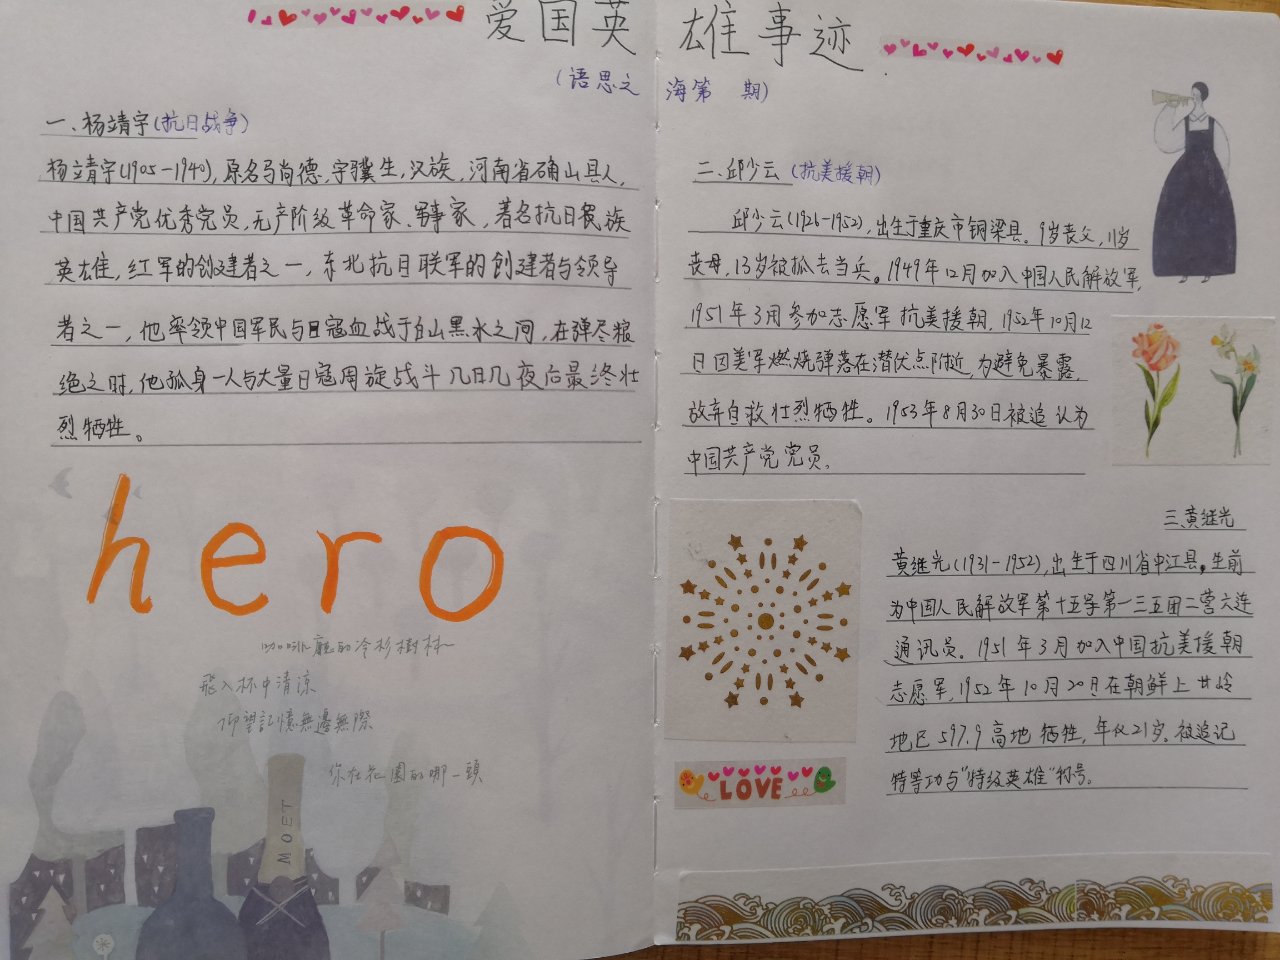 爱国英雄事迹
(语思之海第 期)
一、杨靖宇(抗日战争)
杨靖宇(1905-1940),原名马尚德,字骥生,汉族,河南省确山县人,
中国共产党优秀党员,无产阶级革命家、军事家,著名抗日民族
英雄,红军的创建者之一,东北抗日联军的创建者与领导
者之一,他率领中国军民与日寇血战于白山黑水之间,在弹尽粮
绝之时,他孤身一人与大量日寇周旋战斗几日几夜后最终壮
烈牺牲。
hero
咖啡廳的冷杉樹林
飛入杯中清涼
仰望記憶無邊無際
你在花園的哪一頭
MOET
二、邱少云(抗美援朝)
邱少云(1926-1952),出生于重庆市铜梁县。9岁丧父,11岁
丧母,13岁被抓去当兵。1949年12月加入中国人民解放军,
1951年3月参加志愿军抗美援朝,1952年10月12
日因美军燃烧弹落在潜伏点附近,为避免暴露,
放弃自救壮烈牺牲。1953年8月30日被追认为
中国共产党党员。
三、黄继光
黄继光(1931-1952),出生于四川省中江县,生前
为中国人民解放军第十五军第一三五团二营六连
通讯员。1951年3月加入中国抗美援朝
志愿军,1952年10月20日在朝鲜上甘岭
地区597.9高地牺牲,年仅21岁。被追记
特等功与"特级英雄"称号。
LOVE